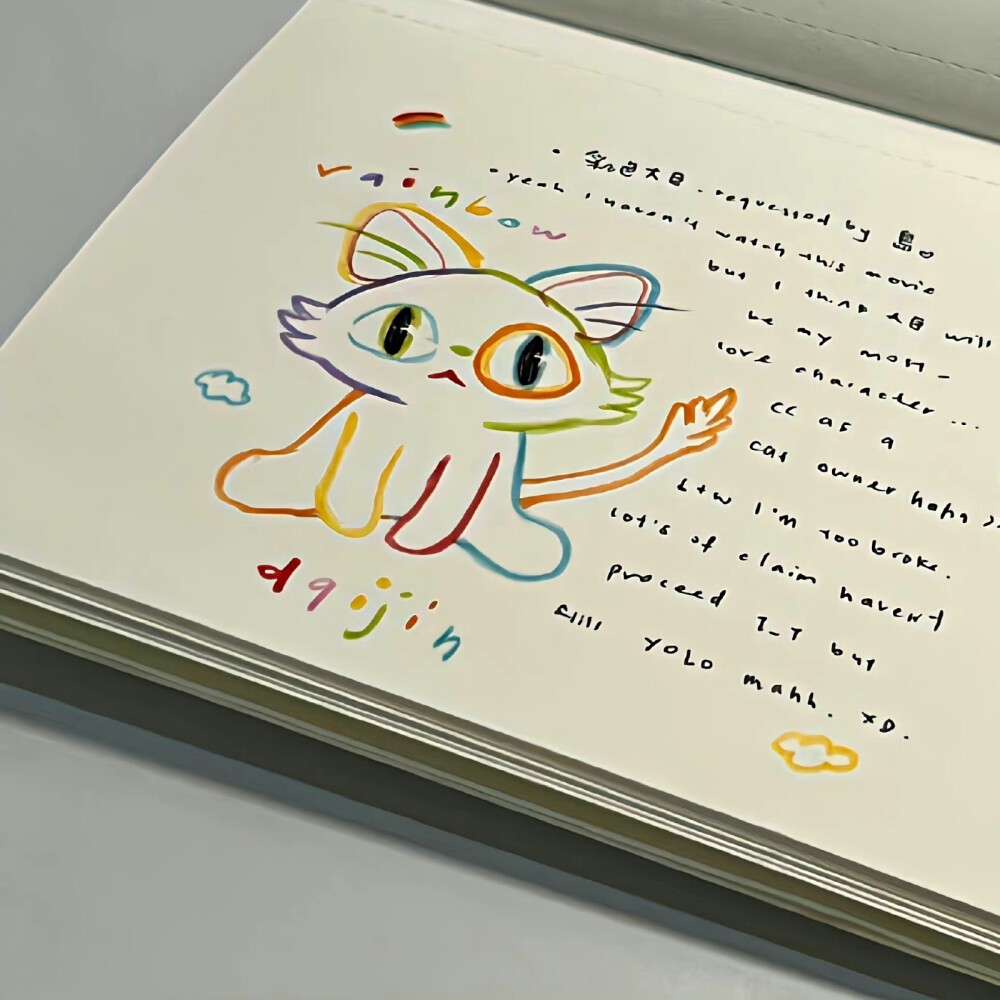 rainbow
daijin
大臣 . requested by 島
• yeah i haven't watch this movie
but i think 大臣 will
be my most -
love character ...
cc as a
cat owner haha
btw i'm too broke.
lot's of claim haven't
proceed T_T but
still YOLO mahh. XD.